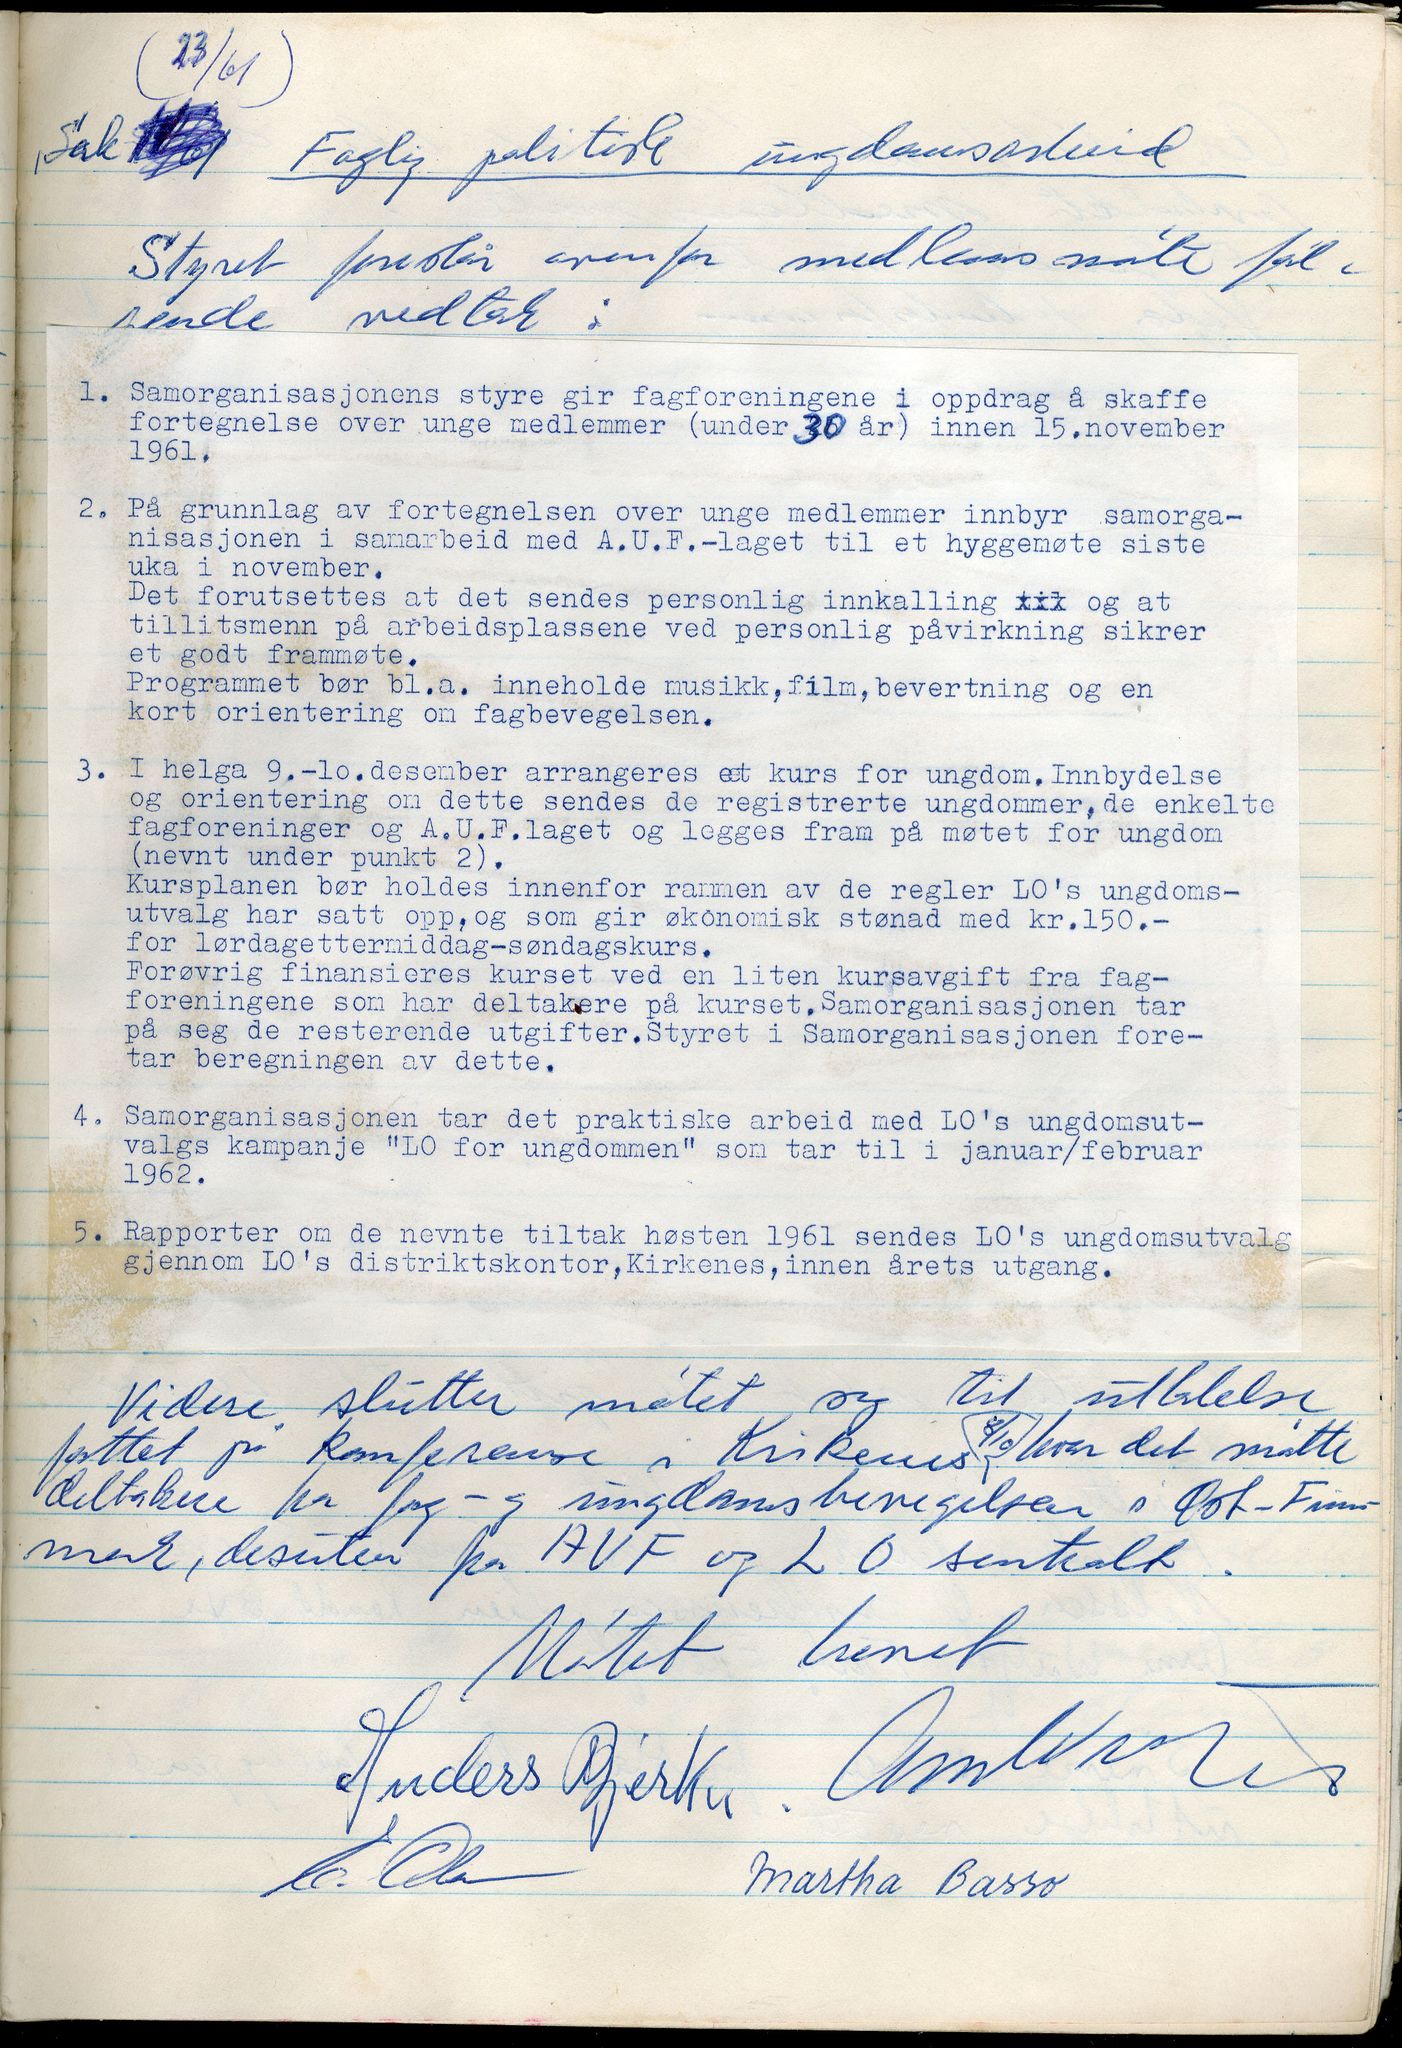 (23/61)
Sak Faglig politisk ungdomsarbeid
Styret foreslår ovenfor medlemsmøte føl-
gende vedtak :
1. Samorganisasjonens styre gir fagforeningene i oppdrag å skaffe
fortegnelse over unge medlemmer (under 30 år) innen 15.november
1961.
2. På grunnlag av fortegnelsen over unge medlemmer innbyr samorga-
nisasjonen i samarbeid med A.U.F.-laget til et hyggemøte siste
uka i november.
Det forutsettes at det sendes personlig innkalling xxx og at
tillitsmenn på arbeidsplassene ved personlig påvirkning sikrer
et godt frammøte.
Programmet bør bl.a. inneholde musikk,film,bevertning og en
kort orientering om fagbevegelsen.
3. I helga 9.-10.desember arrangeres et kurs for ungdom.Innbydelse
og orientering om dette sendes de registrerte ungdommer,de enkelte
fagforeninger og A.U.F.laget og legges fram på møtet for ungdom
(nevnt under punkt 2).
Kursplanen bør holdes innenfor rammen av de regler LO's ungdoms-
utvalg har satt opp,og som gir økonomisk stønad med kr.150.-
for lørdagettermiddag-søndagskurs.
Forøvrig finansieres kurset ved en liten kursavgift fra fag-
foreningene som har deltakere på kurset.Samorganisasjonen tar
på seg de resterende utgifter.Styret i Samorganisasjonen fore-
tar beregningen av dette.
4. Samorganisasjonen tar det praktiske arbeid med LO's ungdomsut-
valgs kampanje "LO for ungdommen" som tar til i januar/februar
1962.
5. Rapporter om de nevnte tiltak høsten 1961 sendes LO's ungdomsutvalg
gjennom LO's distriktskontor,Kirkenes,innen årets utgang.
Videre slutter møtet seg til uttalelse
fattet på konferanse i Kirkenes 8/10 hvor det møtte
deltakere fra fag- og ungdomsbevegelsen i Øst-Finn-
mark, desuten fra AUF og LO sentralt.
Møtet hevet
Anders Bjerke.
Martha Basso